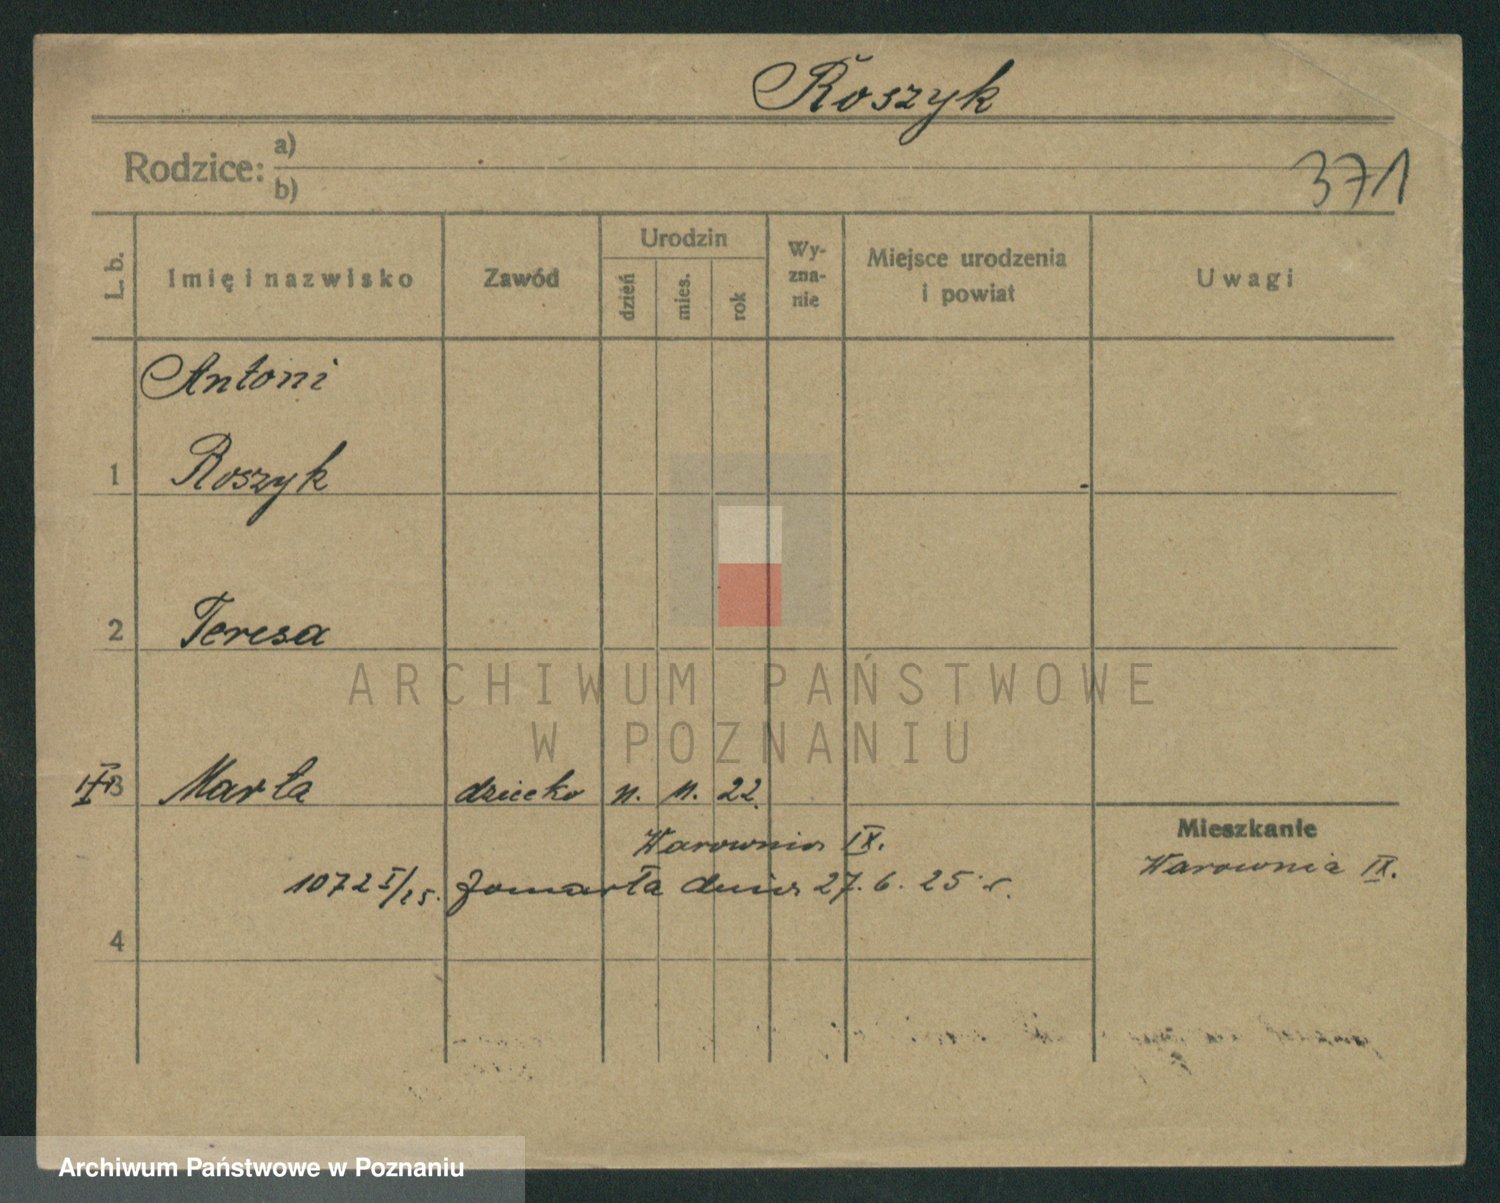 Roszyk
Rodzice: a)
b)
371
L. b.
Imię i nazwisko
Zawód
Urodzin
dzień
mies.
rok
Wy-
zna-
nie
Miejsce urodzenia
i powiat
Uwagi
Antoni
1 Roszyk
2 Teresa
ARCHIWUM PAŃSTWOWE
W POZNANIU
3 Marta dziecko n. n. 22.
Mieszkanie
Warownia IX.
Warownia IX.
1072 I/25. zmarła dnia 27. 6. 25 r.
4
Archiwum Państwowe w Poznaniu